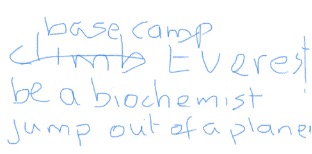 base camp
climb Everest
be a biochemist
jump out of a plane